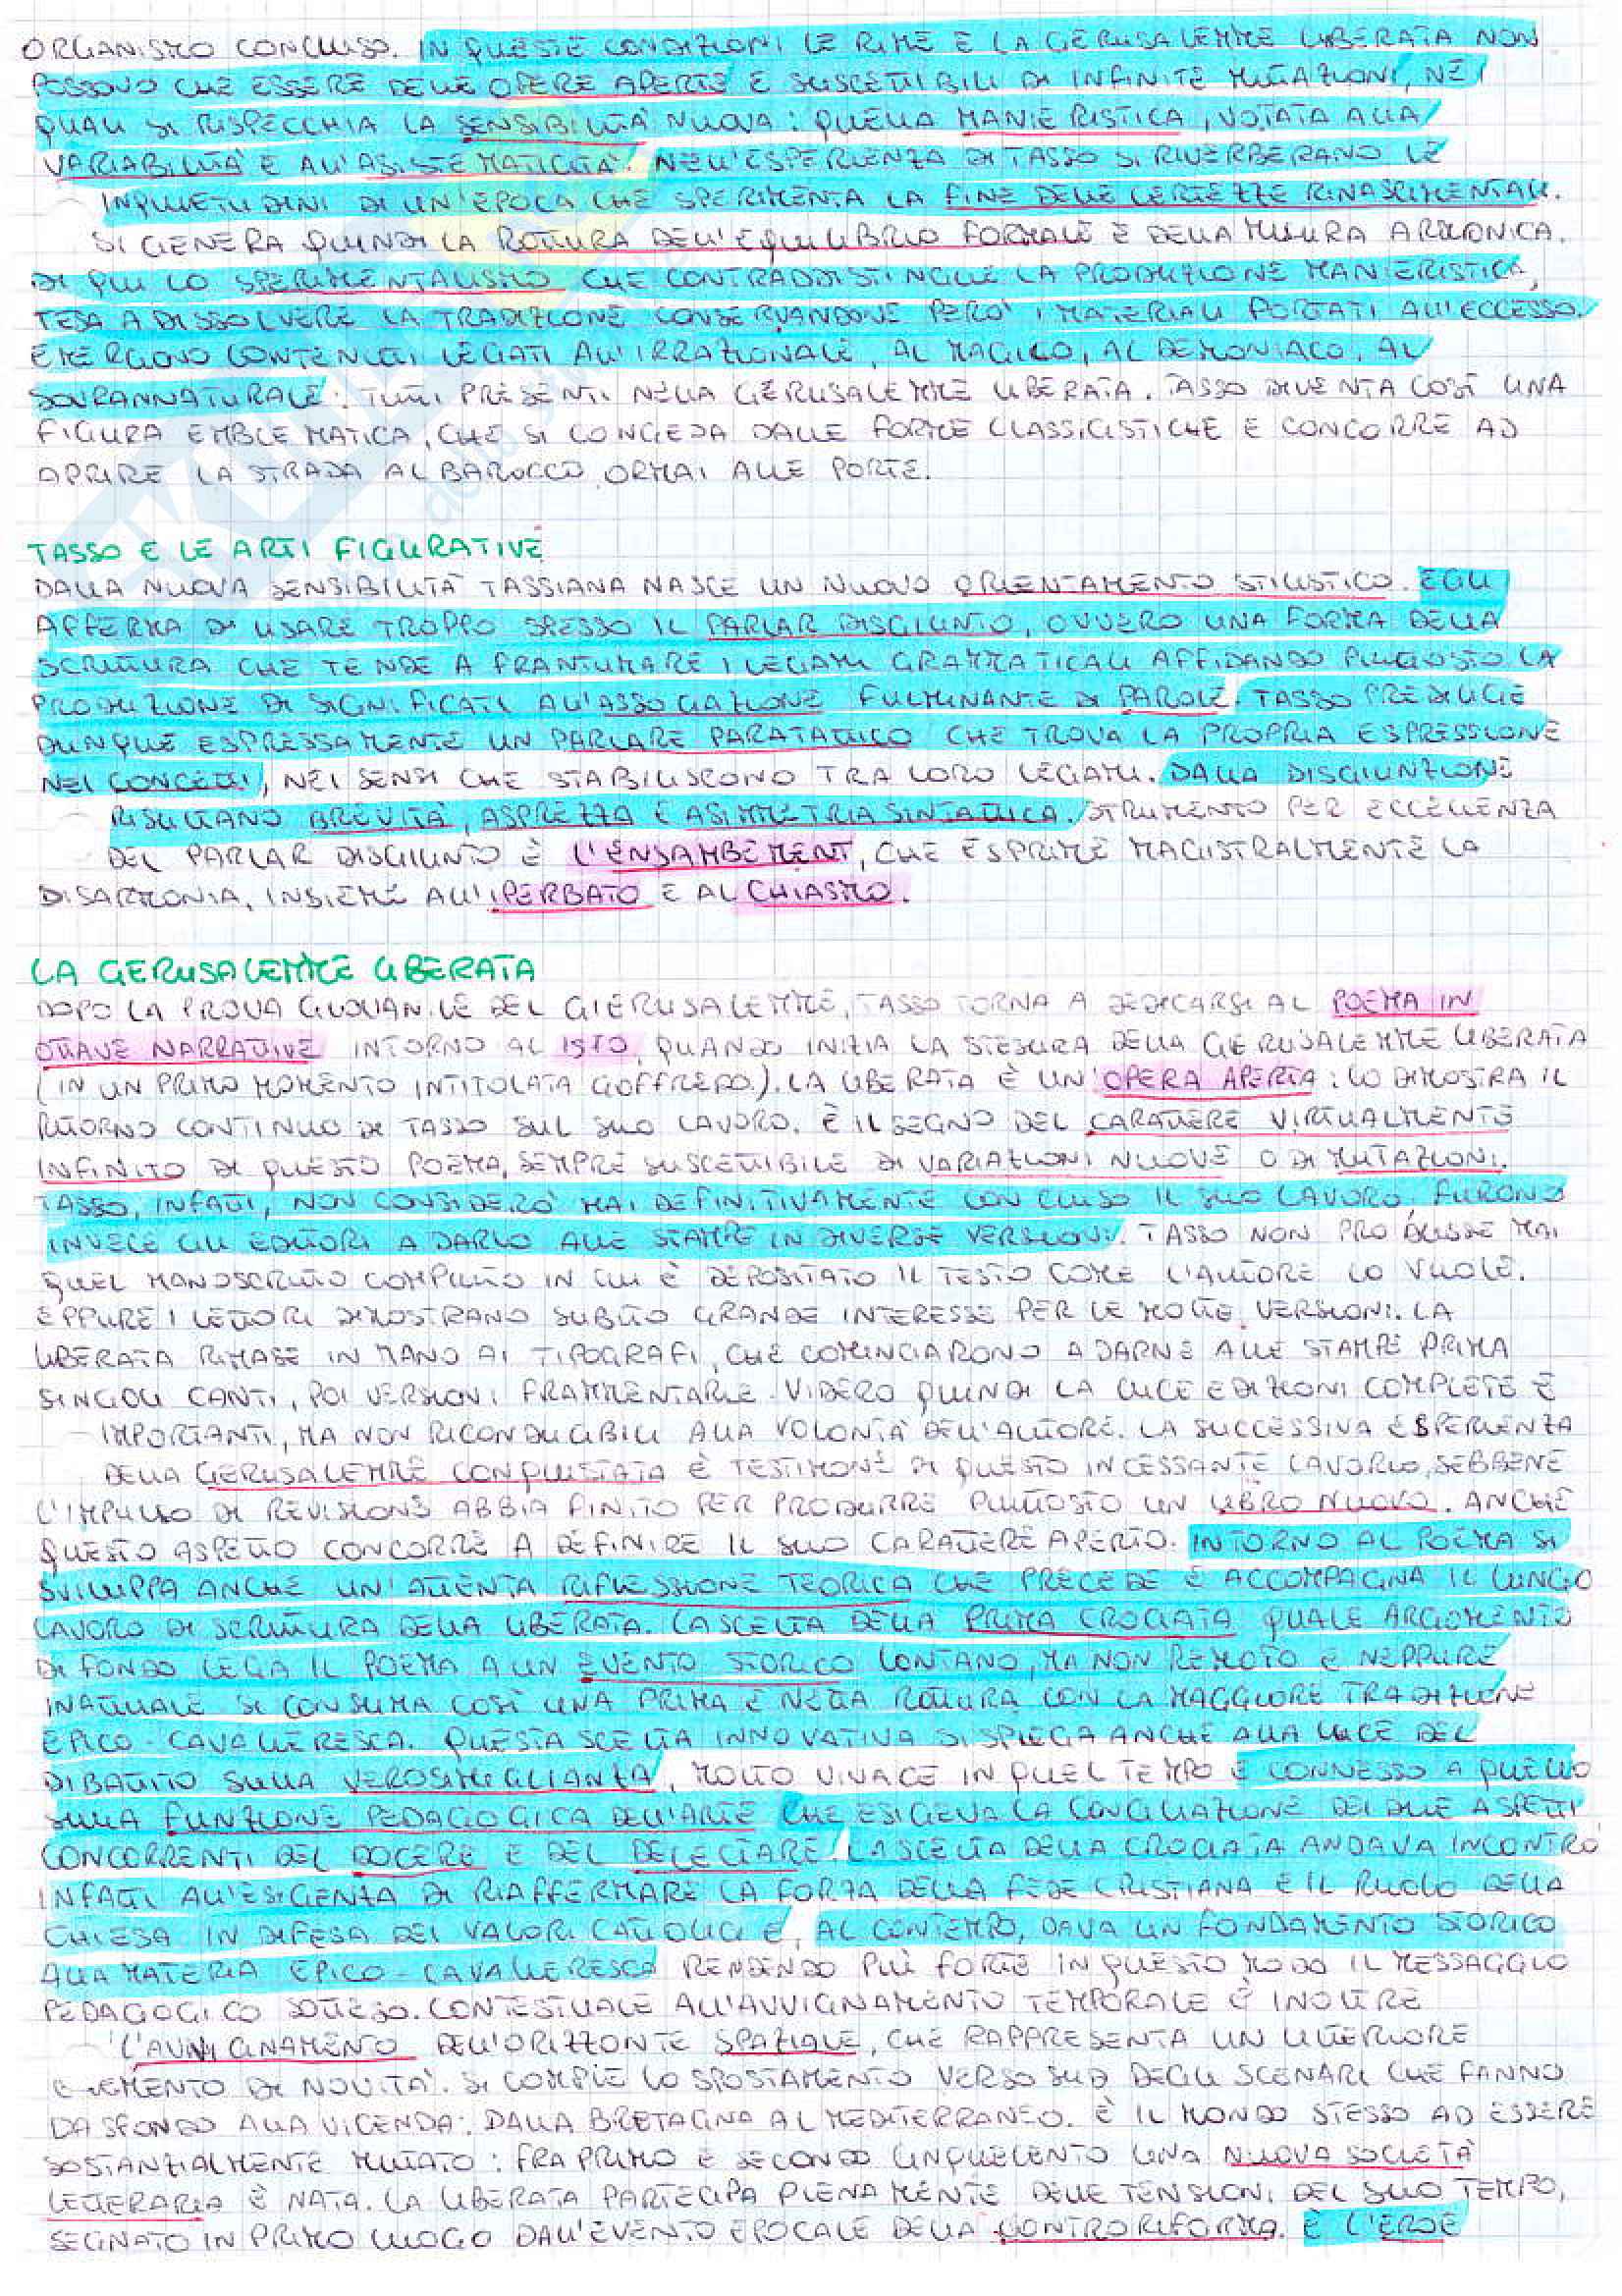 ORGANISMO CONCLUSO. IN QUESTE CONDIZIONI LE RIME E LA GERUSALEMME LIBERATA NON
POSSONO CHE ESSERE DELLE OPERE APERTE E SUSCETTIBILI DI INFINITE MUTAZIONI, NEI
QUALI SI RISPECCHIA LA SENSIBILITÀ NUOVA: QUELLA MANIERISTICA, VOTATA ALLA
VARIABILITÀ E ALL'ASISTEMATICITÀ. NELL'ESPERIENZA DI TASSO SI RIVERBERANO LE
INQUIETUDINI DI UN'EPOCA CHE SPERIMENTA LA FINE DELLE CERTEZZE RINASCIMENTALI.
SI GENERA QUINDI LA ROTTURA DELL'EQUILIBRIO FORMALE E DELLA MISURA ARMONICA.
DI QUI LO SPERIMENTALISMO CHE CONTRADDISTINGUE LA PRODUZIONE MANIERISTICA,
TESA A DISSOLVERE LA TRADIZIONE CONSERVANDONE PERÒ I MATERIALI PORTATI ALL'ECCESSO.
EMERGONO CONTENUTI LEGATI ALL'IRRAZIONALE, AL MAGICO, AL DEMONIACO, AL
SOVRANNATURALE: TUTTI PRESENTI NELLA GERUSALEMME LIBERATA. TASSO DIVENTA COSÌ UNA
FIGURA EMBLEMATICA, CHE SI CONGEDA DALLE FORME CLASSICISTICHE E CONCORRE AD
APRIRE LA STRADA AL BAROCCO ORMAI ALLE PORTE.
TASSO E LE ARTI FIGURATIVE
DALLA NUOVA SENSIBILITÀ TASSIANA NASCE UN NUOVO ORIENTAMENTO STILISTICO. EGLI
AFFERMA DI USARE TROPPO SPESSO IL PARLAR DISGIUNTO, OVVERO UNA FORMA DELLA
SCRITTURA CHE TENDE A FRANTUMARE I LEGAMI GRAMMATICALI AFFIDANDO PIUTTOSTO LA
PRODUZIONE DI SIGNIFICATI ALL'ASSOCIAZIONE FULMINANTE DI PAROLE. TASSO PREDILIGE
DUNQUE ESPRESSAMENTE UN PARLARE PARATATTICO CHE TROVA LA PROPRIA ESPRESSIONE
NEI CONCETTI, NEI SENSI CHE STABILISCONO TRA LORO LEGAMI. DALLA DISGIUNZIONE
RISULTANO BREVITÀ, ASPREZZA E ASIMMETRIA SINTATTICA. STRUMENTO PER ECCELLENZA
DEL PARLAR DISGIUNTO È L'ENSAMBEMENT, CHE ESPRIME MAGISTRALMENTE LA
DISARMONIA, INSIEME ALL'IPERBATO E AL CHIASMO.
LA GERUSALEMME LIBERATA
DOPO LA PROVA GIOVANILE DEL GIERUSALEMME, TASSO TORNA A DEDICARSI AL POEMA IN
OTTAVE NARRATIVE INTORNO AL 1570, QUANDO INIZIA LA STESURA DELLA GERUSALEMME LIBERATA
(IN UN PRIMO MOMENTO INTITOLATA GOFFREDO). LA LIBERATA È UN'OPERA APERTA: LO DIMOSTRA IL
RITORNO CONTINUO DI TASSO SUL SUO LAVORO. È IL SEGNO DEL CARATTERE VIRTUALMENTE
INFINITO DI QUESTO POEMA, SEMPRE SUSCETTIBILE DI VARIAZIONI NUOVE O DI MUTAZIONI.
TASSO, INFATTI, NON CONSIDERÒ MAI DEFINITIVAMENTE CONCLUSO IL SUO LAVORO, FURONO
INVECE GLI EDITORI A DARLO ALLE STAMPE IN DIVERSE VERSIONI. TASSO NON PRODUSSE MAI
QUEL MANOSCRITTO COMPIUTO IN CUI È DEPOSITATO IL TESTO COME L'AUTORE LO VUOLE.
EPPURE I LETTORI DIMOSTRANO SUBITO GRANDE INTERESSE PER LE MOLTE VERSIONI. LA
LIBERATA RIMASE IN MANO AI TIPOGRAFI, CHE COMINCIARONO A DARNE ALLE STAMPE PRIMA
SINGOLI CANTI, POI VERSIONI FRAMMENTARIE. VIDERO QUINDI LA LUCE EDIZIONI COMPLETE E
IMPORTANTI, MA NON RICONDUCIBILI ALLA VOLONTÀ DELL'AUTORE. LA SUCCESSIVA ESPERIENZA
DELLA GERUSALEMME CONQUISTATA È TESTIMONE DI QUESTO INCESSANTE LAVORIO, SEBBENE
L'IMPULSO DI REVISIONE ABBIA FINITO PER PRODURRE PIUTTOSTO UN LIBRO NUOVO. ANCHE
QUESTO ASPETTO CONCORRE A DEFINIRE IL SUO CARATTERE APERTO. INTORNO AL POEMA SI
SVILUPPA ANCHE UN'ATTENTA RIFLESSIONE TEORICA CHE PRECEDE E ACCOMPAGNA IL LUNGO
LAVORO DI SCRITTURA DELLA LIBERATA. LA SCELTA DELLA PRIMA CROCIATA QUALE ARGOMENTO
DI FONDO LEGA IL POEMA A UN EVENTO STORICO LONTANO, MA NON REMOTO E NEPPURE
INATTUALE SI CONSUMA COSÌ UNA PRIMA E NETTA ROTTURA CON LA MAGGIORE TRADIZIONE
EPICO-CAVALLERESCA. QUESTA SCELTA INNOVATIVA SI SPIEGA ANCHE ALLA LUCE DEL
DIBATTITO SULLA VEROSIMIGLIANZA, MOLTO VIVACE IN QUEL TEMPO E CONNESSO A QUELLO
SULLA FUNZIONE PEDAGOGICA DELL'ARTE CHE ESIGEVA LA CONCILIAZIONE DEI DUE ASPETTI
CONCORRENTI DEL DOCERE E DEL DELECTARE. LA SCELTA DELLA CROCIATA ANDAVA INCONTRO
INFATTI ALL'ESIGENZA DI RIAFFERMARE LA FORZA DELLA FEDE CRISTIANA E IL RUOLO DELLA
CHIESA IN DIFESA DEI VALORI CATTOLICI E, AL CONTEMPO, DAVA UN FONDAMENTO STORICO
ALLA MATERIA EPICO-CAVALLERESCA RENDENDO PIÙ FORTE IN QUESTO MODO IL MESSAGGIO
PEDAGOGICO SOTTESO. CONTESTUALE ALL'AVVICINAMENTO TEMPORALE È INOLTRE
L'AVVICINAMENTO DELL'ORIZZONTE SPAZIALE, CHE RAPPRESENTA UN ULTERIORE
ELEMENTO DI NOVITÀ. SI COMPIE LO SPOSTAMENTO VERSO SUD DEGLI SCENARI CHE FANNO
DA SFONDO ALLA VICENDA: DALLA BRETAGNA AL MEDITERRANEO. È IL MONDO STESSO AD ESSERE
SOSTANZIALMENTE MUTATO: FRA PRIMO E SECONDO CINQUECENTO UNA NUOVA SOCIETÀ
LETTERARIA È NATA. LA LIBERATA PARTECIPA PIENAMENTE DELLE TENSIONI DEL SUO TEMPO,
SEGNATO IN PRIMO LUOGO DALL'EVENTO EPOCALE DELLA CONTRORIFORMA. È L'EROE